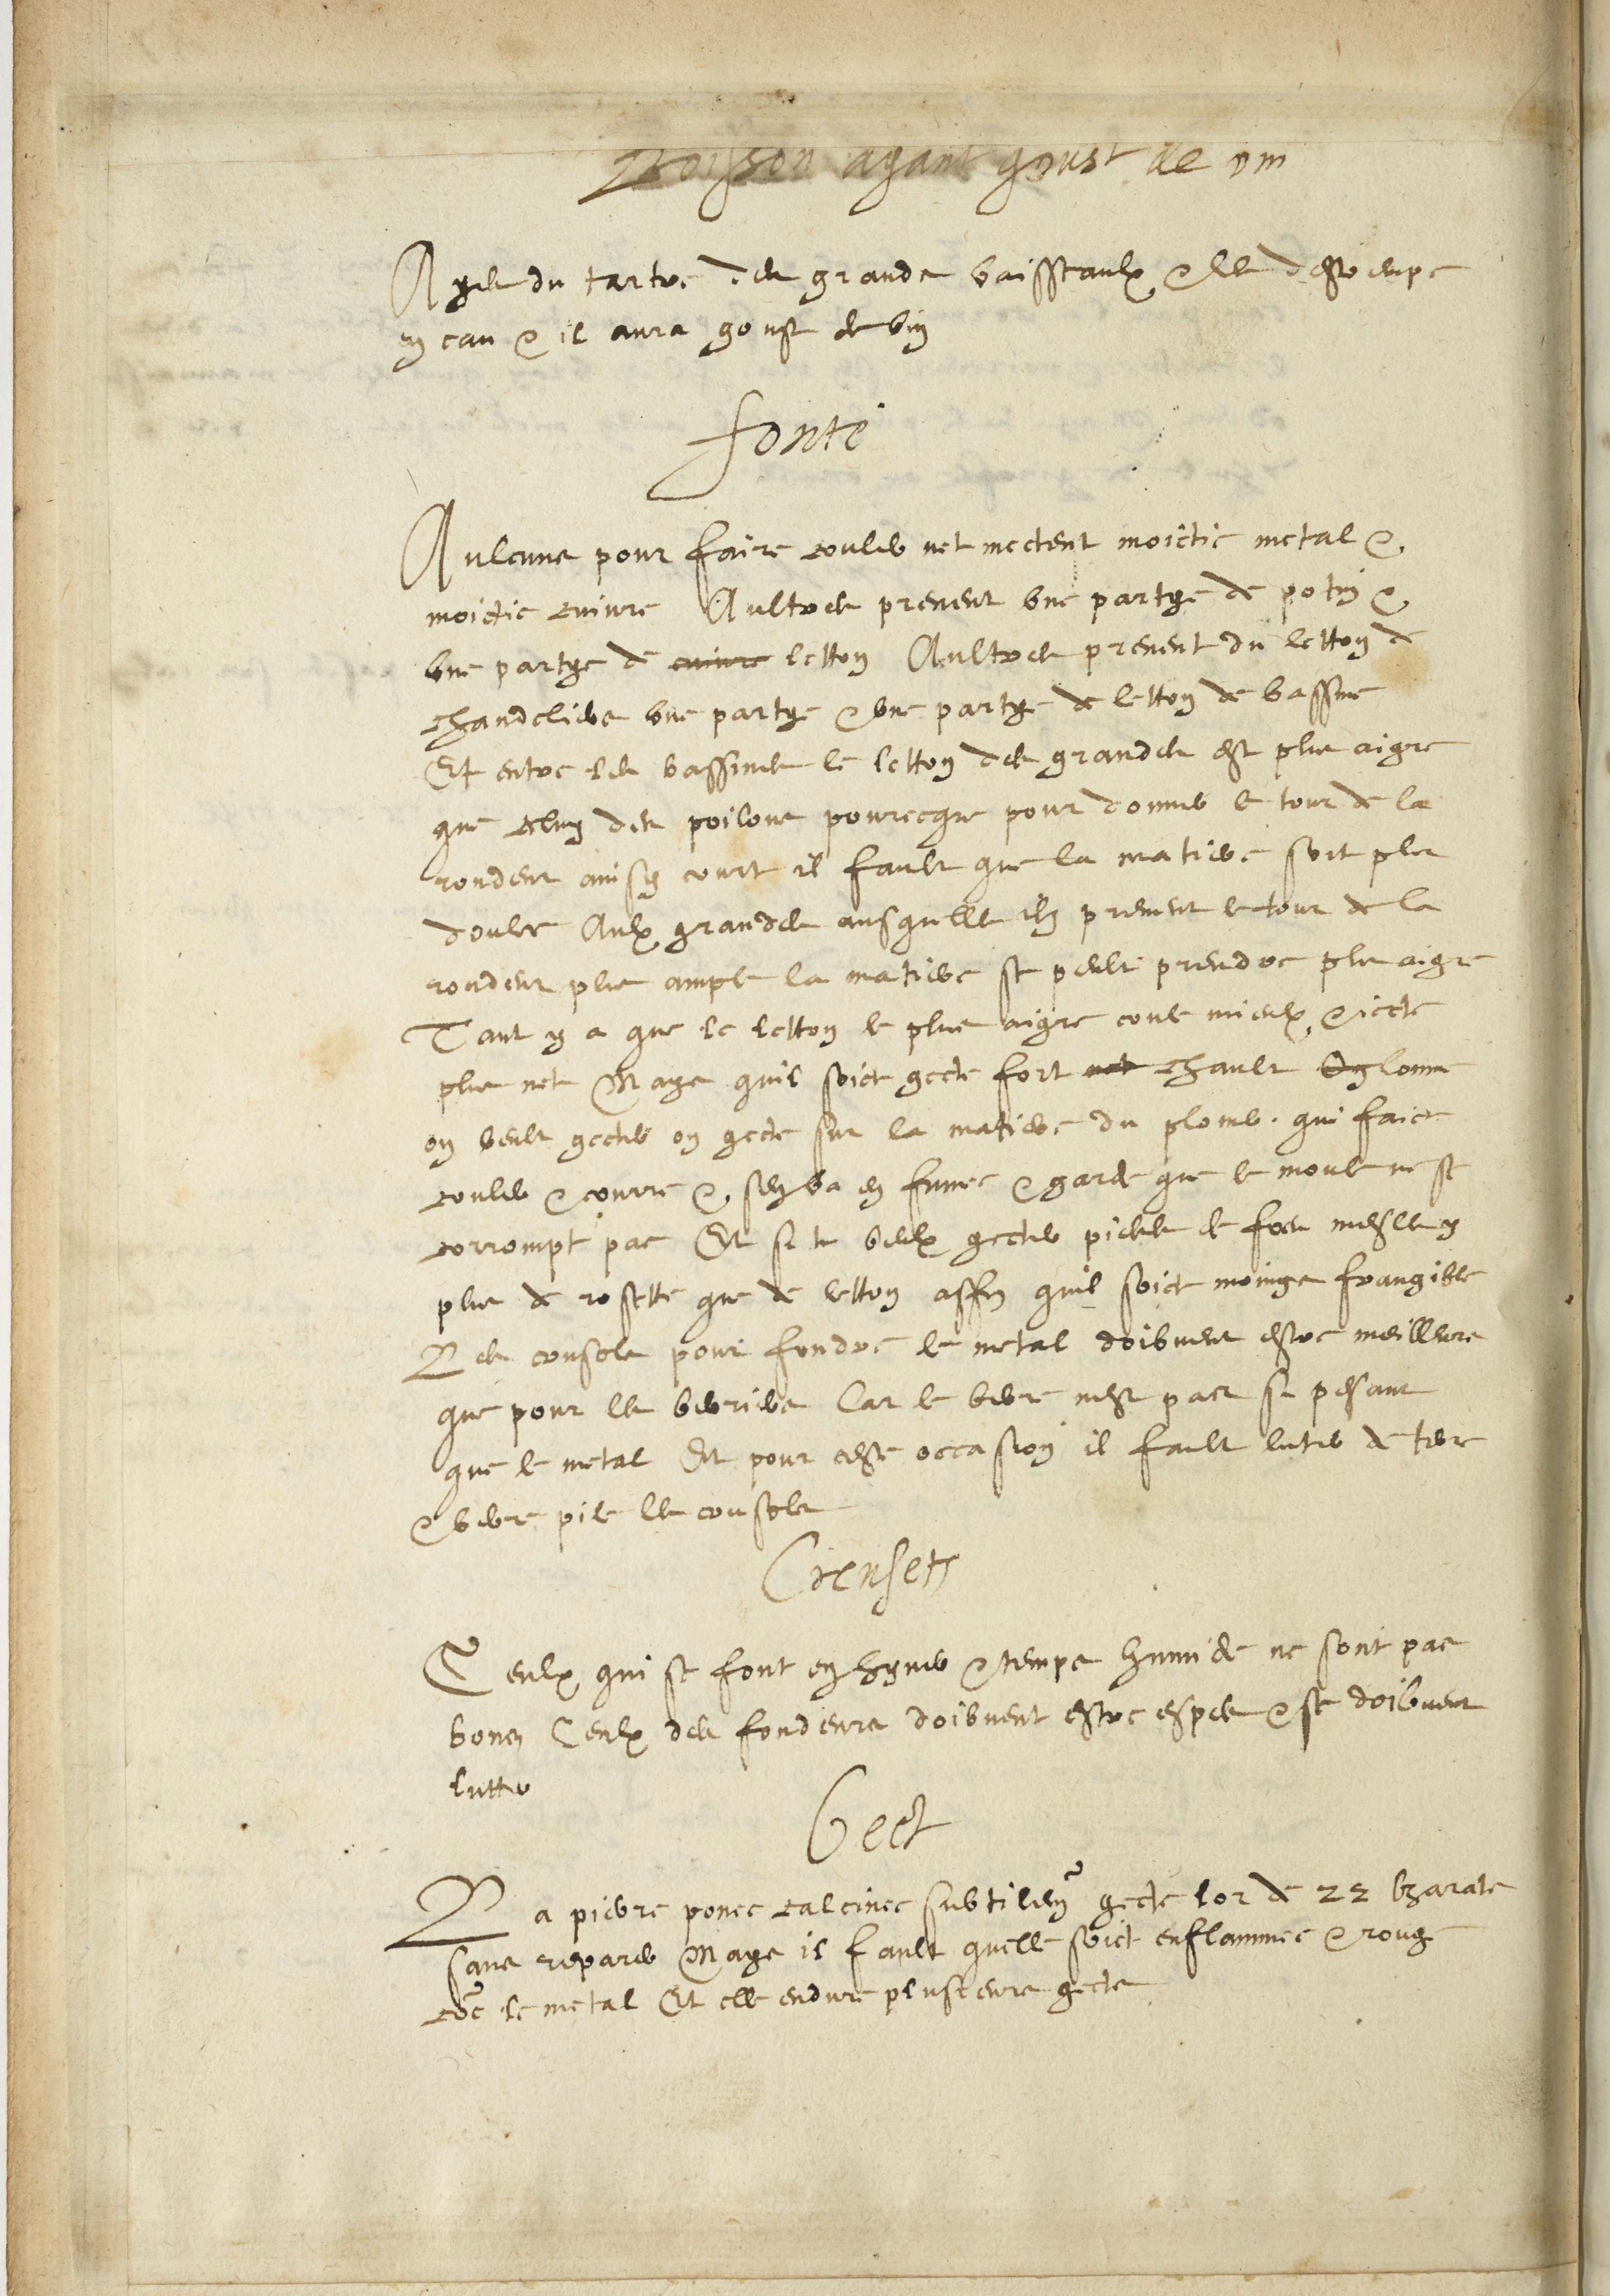 Boisson ayant goust de vin
Ayes du tartre des grands vaisseaulx & le destrempe
en eau & il aura goust de vin
Fonte
Aulcuns pour faire couler net mectent moictie metal &
moictie cuivre Aultres prenent une partye de potin &
une partye de cuivre letton Aultres prenent du letton de
chandeliers une partye & une partye de letton de bassine
Et entre les bassines le letton des grandes est plus aigre
que celuy des poilons pourceque pour donner le tour de la
rondeur ainsy court il fault que la matiere soit plus
doulce Aulx grandes ausquelles ilz prenent le tour de la
rondeur plus ample la matiere se peult prendre plus aigre
Tant y a que le letton le plus aigre coule mieulx & iecte
plus net Mays quil soict gecte fort net chault Et comme
on veult gecter on gecte sur la matiere du plomb qui faict
couler & courre & sen va en fumee & garde que le moule ne se
corrompt pas Et si tu veulx gecter pieces de fort mesles y
plus de rosette que de letton affin quil soict moings frangible
Les cousoles pour fondre le metal doibvent estre meilleurs
que pour les verriers Car le verre nest pas si pesant
que le metal Et pour ceste occasion il fault luter de terre
& verre pile les cousoles
Creusets
Ceulx qui se font en hyver & temps humide ne sont pas
bons Ceulx des fondeurs doibvent estre espes & se doibvent
lutter
Gect
La pierre ponce calcinee subtilem gecte lor de 22 kharats
sans reparer Mays il fault quelle soict enflammee & rouge
coe le metal Et elle endure plusieurs gects